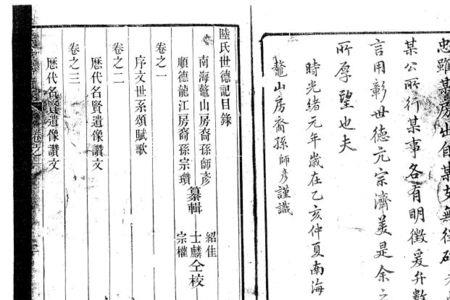 忠雖某房出自某支無
某公所行某事各有明徵爰升數
言用彰世德元宗濟美是余之
所厚望也夫
時光緒元年歲在乙亥仲夏南海
鼇山房裔孫師彥謹識
陸氏世德記目錄
南海鼇山房裔孫師彥
順德龍江房裔孫宗瓚
纂輯
紹佳
士麟
宗權
仝校
卷之一
序文世系頌賦歌
卷之二
歷代名賢遺像讚文
卷之三
歷代名賢遺像讚文